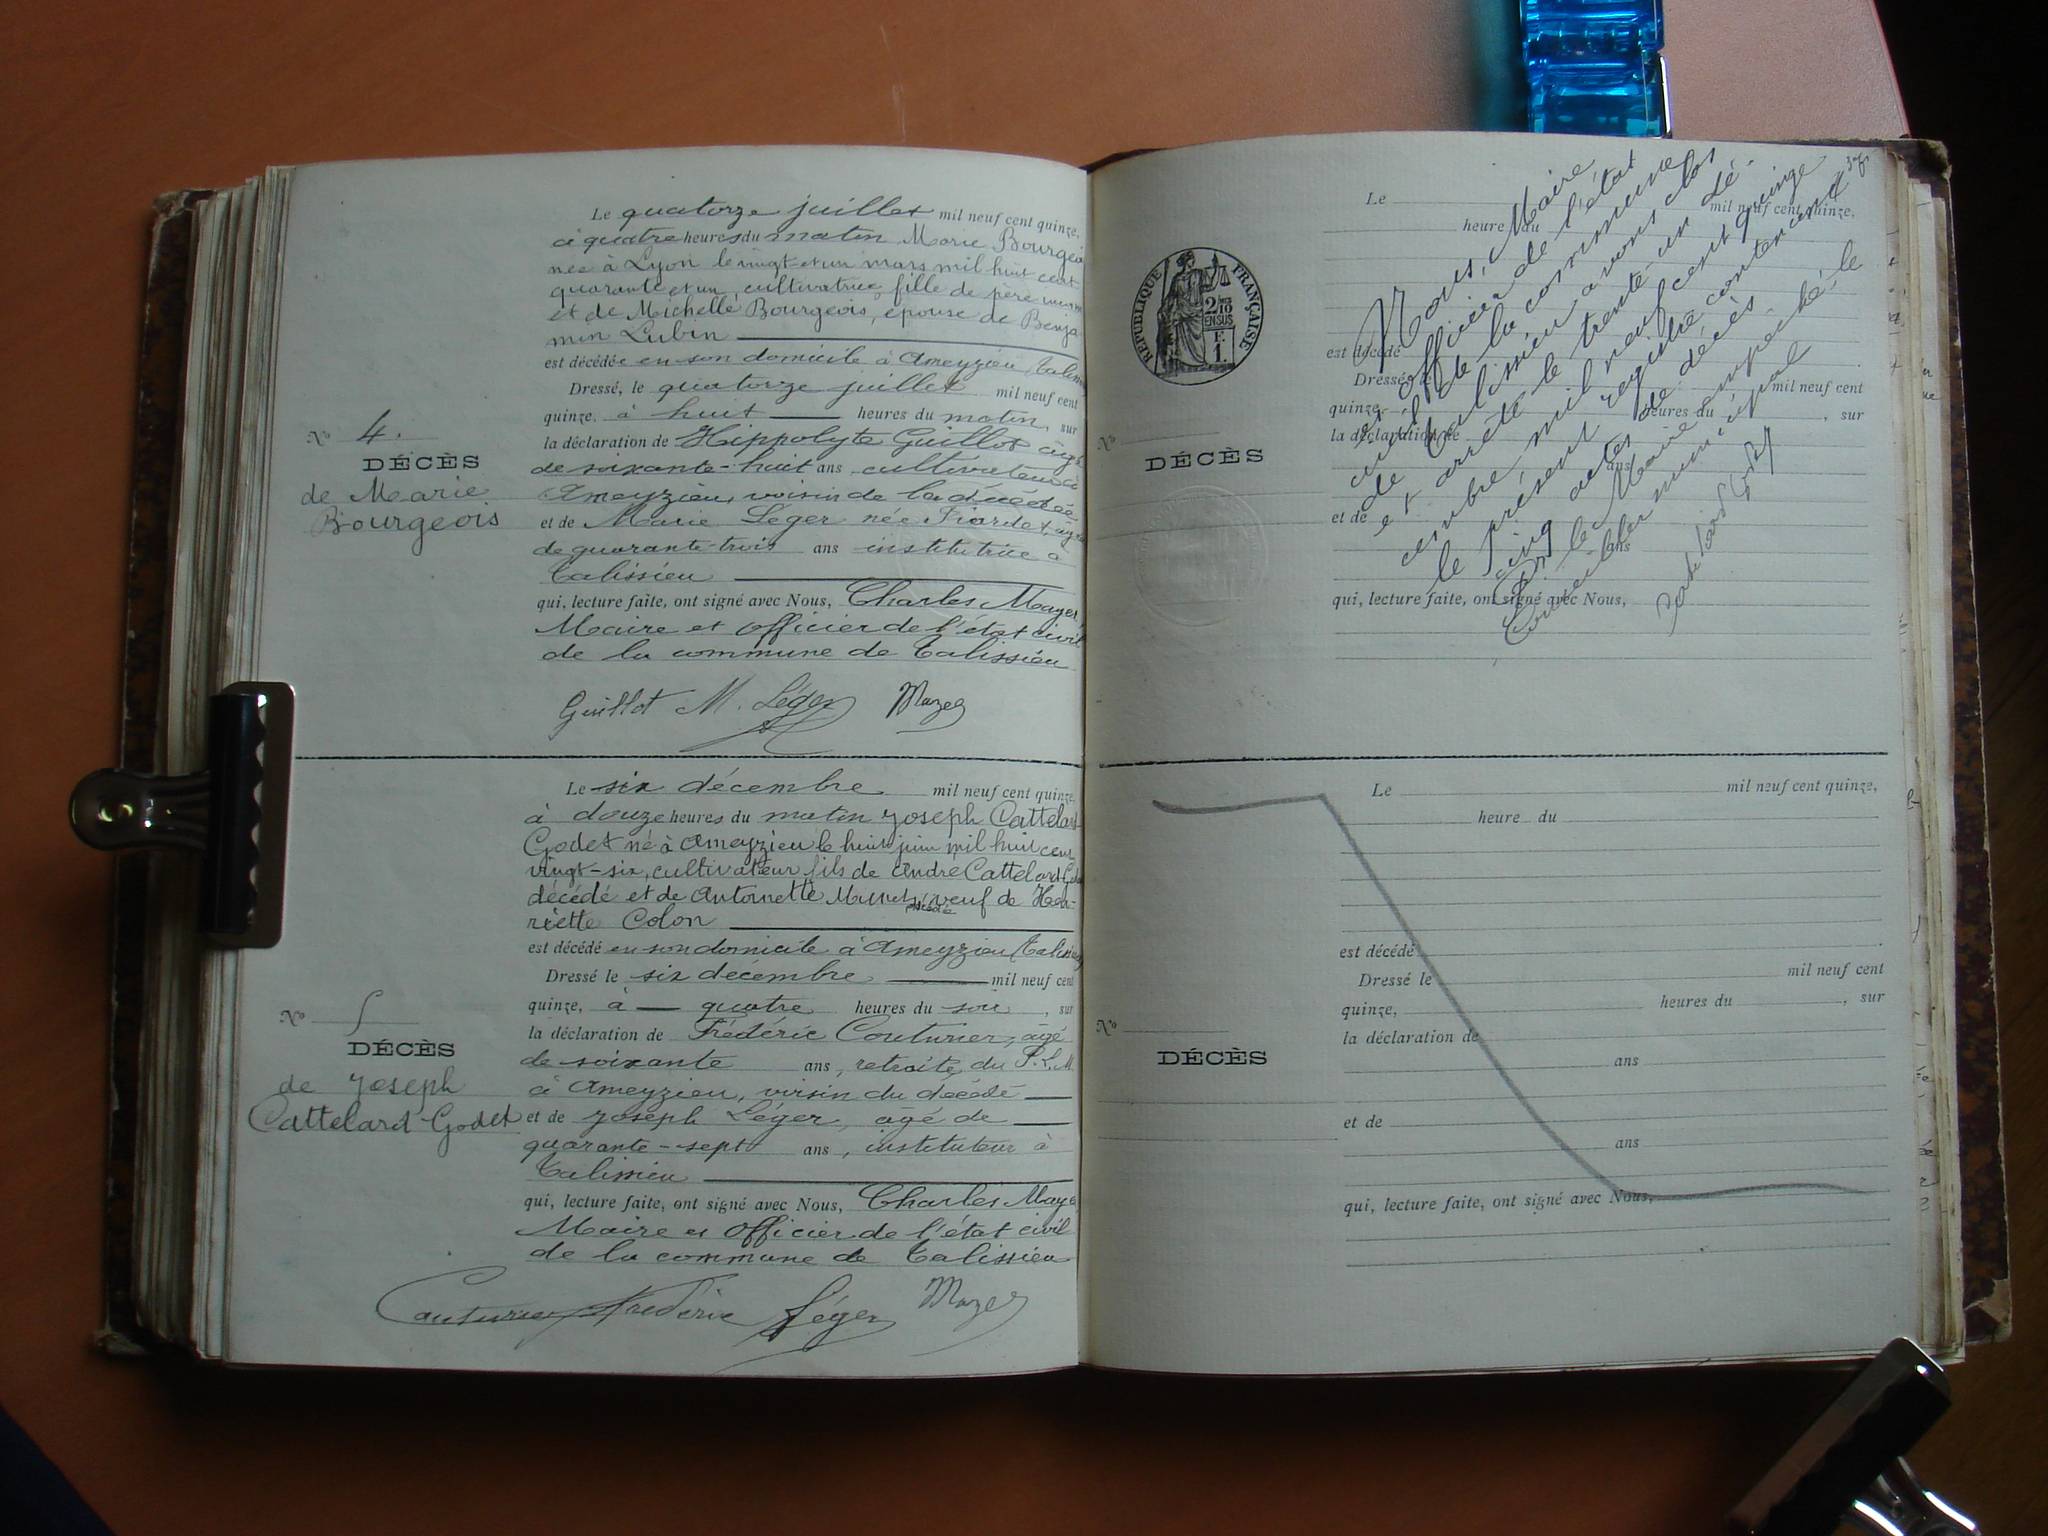 Le quatorze juillet mil neuf cent quinze,
à quatre heures du matin Marie Bourgeois
née à Lyon le vingt et un mars mil huit cent
quarante et un, cultivatrice, fille de père
et de Michelle Bourgeois, épouse de Benja
min Lubin
est décédée en son domicile à Ameyzieu,
Dressé, le quatorze juillet mil neuf cent
quinze, à huit heures du matin, sur
la déclaration de Hippolyte Guillot âgé
de soixante-huit ans cultivateur à
Ameyzieu, voisin de la décédée
et de Marie Léger née
de quarante-trois ans institutrice à
Talissieu
qui, lecture faite, ont signé avec Nous, Charles
Maire et officier de l'état civil
de la commune de Talissieu
Guillot M. Léger
No 4.
DÉCÈS
de Marie
Bourgeois
Le six décembre mil neuf cent quinze,
à douze heures du matin Joseph Cattelard
Godet né à Ameyzieu le huit juin mil huit cent
vingt-six, cultivateur fils de André Cattelard
décédé et de Antoinette décédée veuf de Hen-
riette Colon
est décédé en son domicile à Ameyzieu
Dressé le six décembre mil neuf cent
quinze, à quatre heures du soir, sur
la déclaration de Frédéric Couturier, âgé
de soixante ans, retraité du P.L.M.
à Ameyzieu, voisin du décédé
et de Joseph Léger, âgé de
quarante-sept ans, instituteur à
Talissieu
qui, lecture faite, ont signé avec Nous, Charles
Maire et officier de l'état civil
de la commune de Talissieu
Couturier Frédéric Léger
No 5
DÉCÈS
de Joseph
Cattelard-Godet
Le mil neuf cent quinze,
heure du
RÉPUBLIQUE FRANÇAISE
2/10 EN SUS
F.
1.
est décédé
Dressé le mil neuf cent
quinze, heures du , sur
la déclaration de
ans
No
DÉCÈS
et de
ans
qui, lecture faite, ont signé avec Nous,
Nous, Maire
et officier de l'état
civil de la commune
de Talissieu avons clos
et arrêté le trente-un dé-
cembre mil neuf cent quinze
le présent registre contenant
cinq actes de décès.
Pr le Maire empêché, le
Conseiller municipal
Le mil neuf cent quinze,
heure du
est décédé
Dressé le mil neuf cent
quinze, heures du , sur
la déclaration de
ans
No
DÉCÈS
et de
ans
qui, lecture faite, ont signé avec Nous,